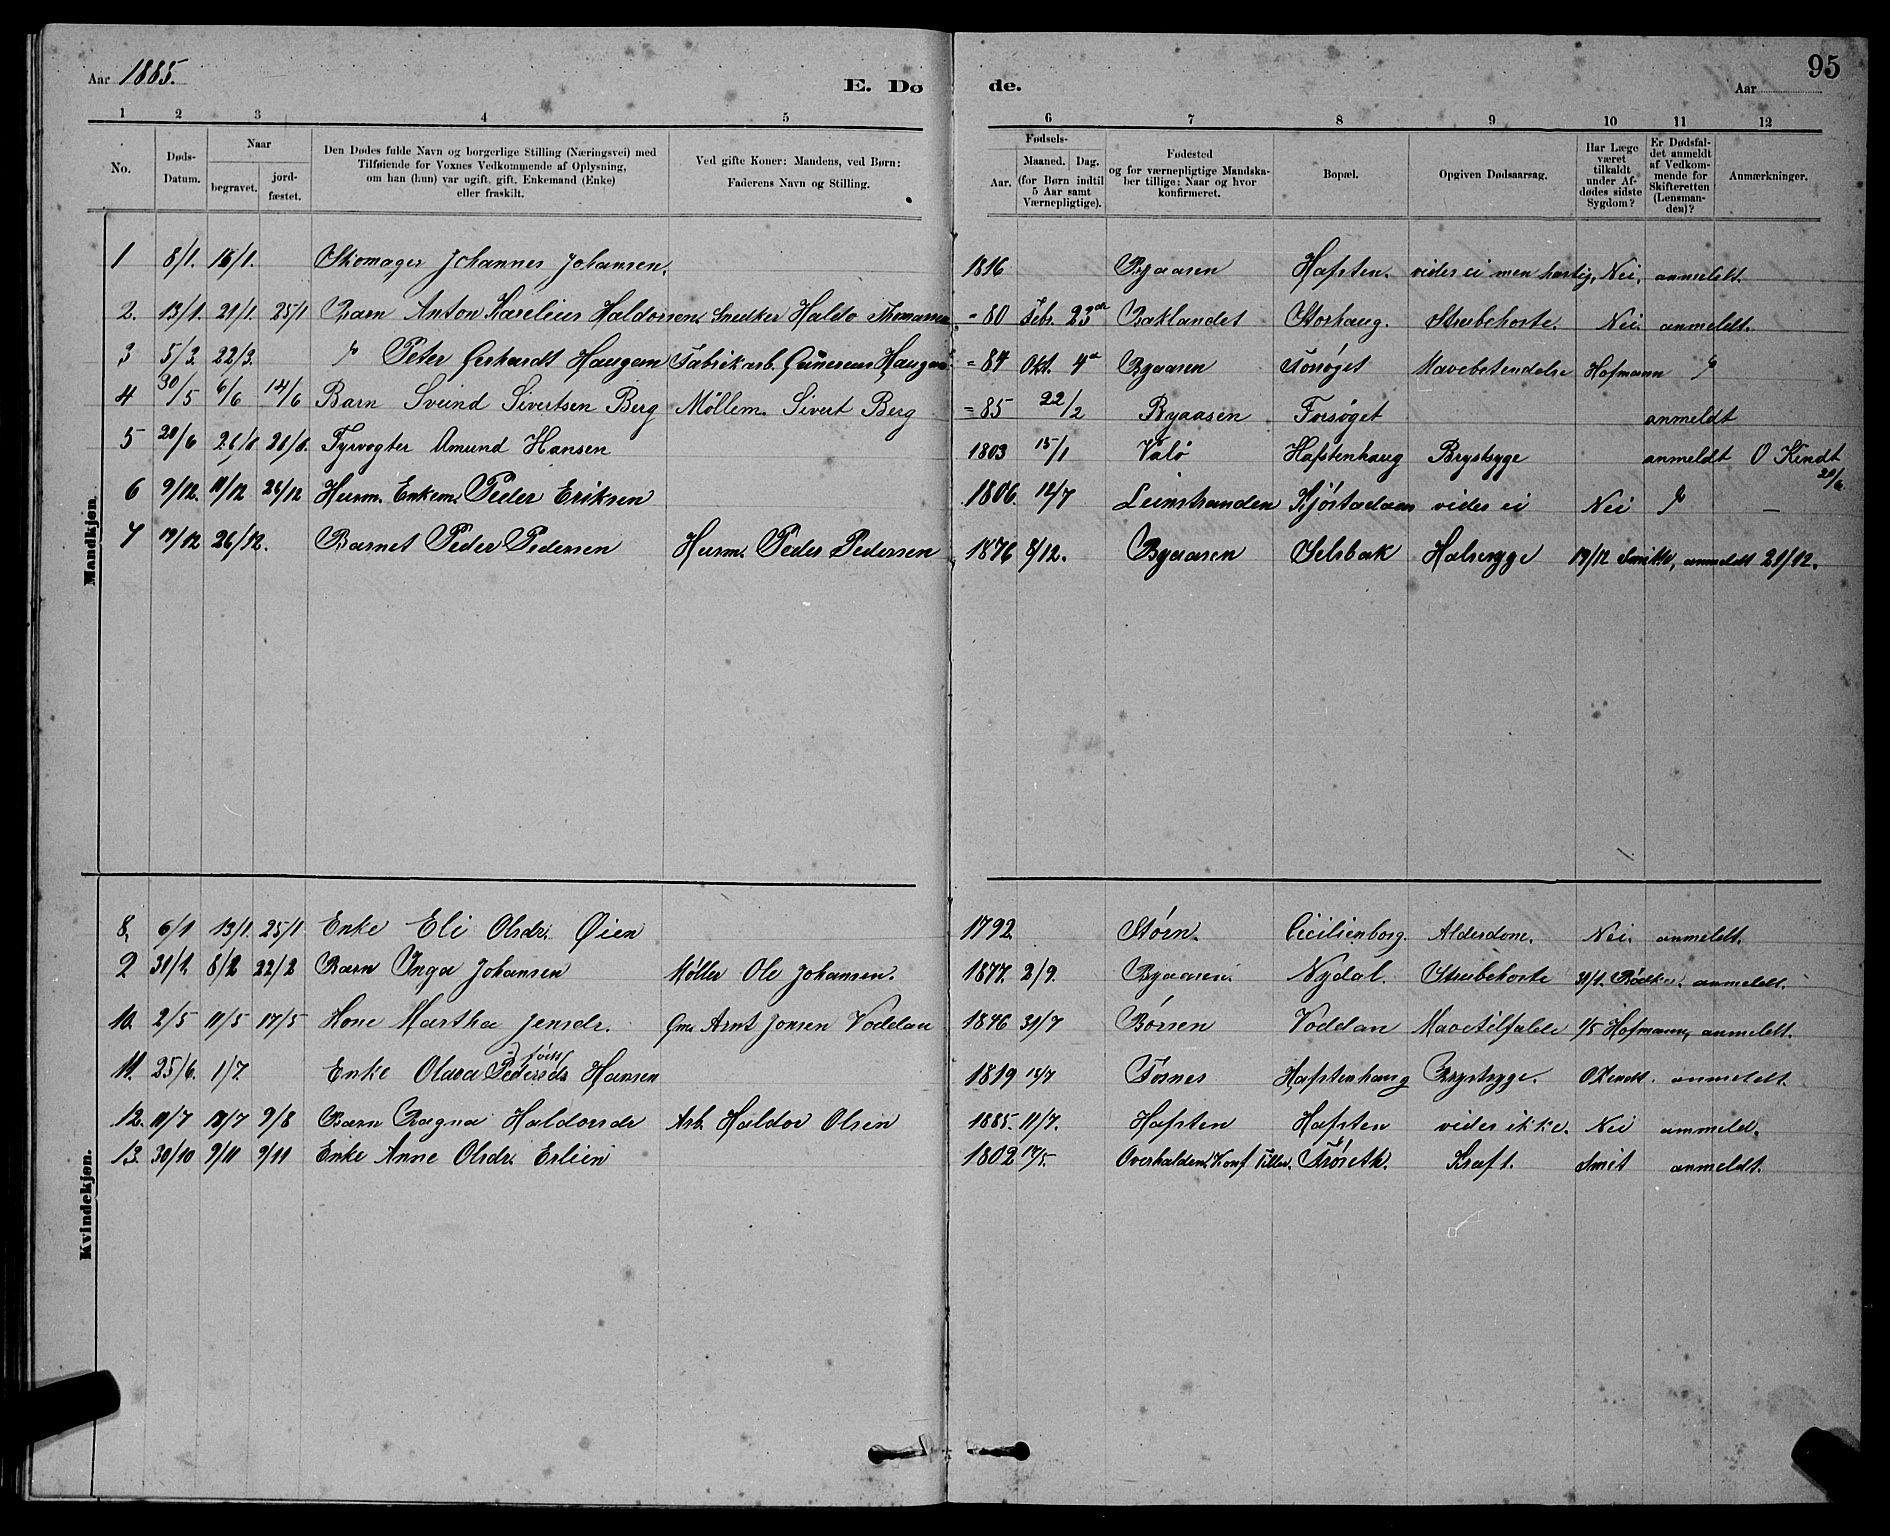 Aar 1885.
E. Dø
de.
95
Aar
1 2 3 4 5 6 7 8 9 10 11 12
No.
Døds-
Datum.
Naar
begravet.
jord-
fæstet.
Den Dødes fulde Navn og borgerlige Stilling (Næringsvei) med
Tilføiende for Voxnes Vedkommende af Oplysning,
om han (hun) var ugift, gift, Enkemand (Enke)
eller fraskilt.
Ved gifte Koner: Mandens, ved Børn:
Faderens Navn og Stilling.
Fødsels-
Aar.
Maaned. Dag.
(for Børn indtil
5 Aar samt
Værnepligtige).
Fødested
og for værnepligtige Mandska-
ber tillige: Naar og hvor
konfirmeret.
Bopæl.
Opgiven Dødsaarsag.
Har Læge
været
tilkaldt
under Af-
dødes sidste
Sygdom?
Er Dødsfal-
det anmeldt
af Vedkom-
mende for
Skifteretten
(Lensman-
den)?
Anmærkninger.
Mandkjøn
1 8/1. 16/1. Skomager Johannes Johansen. 1816 Byaasen Hafsten. vides ei men hastig, Nei, anmeldt.
2. 13/1. 21/1. 25/1 Barn Anton Karelius Haldorsen. Snedker Haldo Thomassen - 80 Febr. 23de Baklandet Storhaug. Strubehoste. Nei. anmeldt.
3 5/3. 22/3. " Peter Gerhardt Haugan Fabrikarb. Gunerius Haugan = 84 Okt. 4de Byaasen Forsøget Mavebetendelse Hofmann "
4 30/5 6/6 14/6 Barn Sveind Sivertsen Berg Møllem. Sivert Berg = 85 22/2 Byaasen Forsøget anmeldt
5 20/6 26/6 28/6. Fyrvogter Amund Hansen 1803 15/1 Valø Hafstenhaug Brystsyge anmeldt O Kindt
20/6.
6 9/12. 19/12 26/12 Husm. Enkem. Peder Eriksen 1806. 12/7 Leinstranden Kjøstadaen vides ei Nei " —
7 19/12 26/12. Barnet Peder Pedersen Husm. Peder Pedersen 1876 8/12. Byaasen Selsbak Halssyge 19/12 Smitt, anmeldt 21/12.
Kvindekjøn.
8. 6/1 13/1. 25/1 Enke Eli Olsdr. Øien 1792. Støren. Ceciliénborg. Alderdom. Nei. anmeldt.
9 31/1. 8/2 22/2 Barn Inga Johansen Møller Ole Johansen. 1877. 2/9. Byaasen. Nydal. Strubehoste 31/1. Bødtker. anmeldt.
10. 2/5 11/5 17/5 Kone Martha Jensdr. Gm. Arnt Jonsen Voddan 1846 31/7 Børsen Voddan Mavetilfælde 1/5 Hofmann, anmeldt.
11. 25/6. 1/7. Enke Olava Pedersdr Hansen 1819 15/7 Fosnes Hafstenhaug Brystsyge. O Kindt. anmeldt.
12. 11/7 18/7 9/8 Barn Ragna Haldorsdr Arb. Haldor Olsen 1885. 11/7. Hafsten Hafsten vides ikke. Nei anmeld.
13. 30/10 9/11 9/11 Enke Anne Olsdr. Erlien 1802 17/5. Overhalden. Konf Tiller. Frøseth. Kræft. Smit anmeldt.